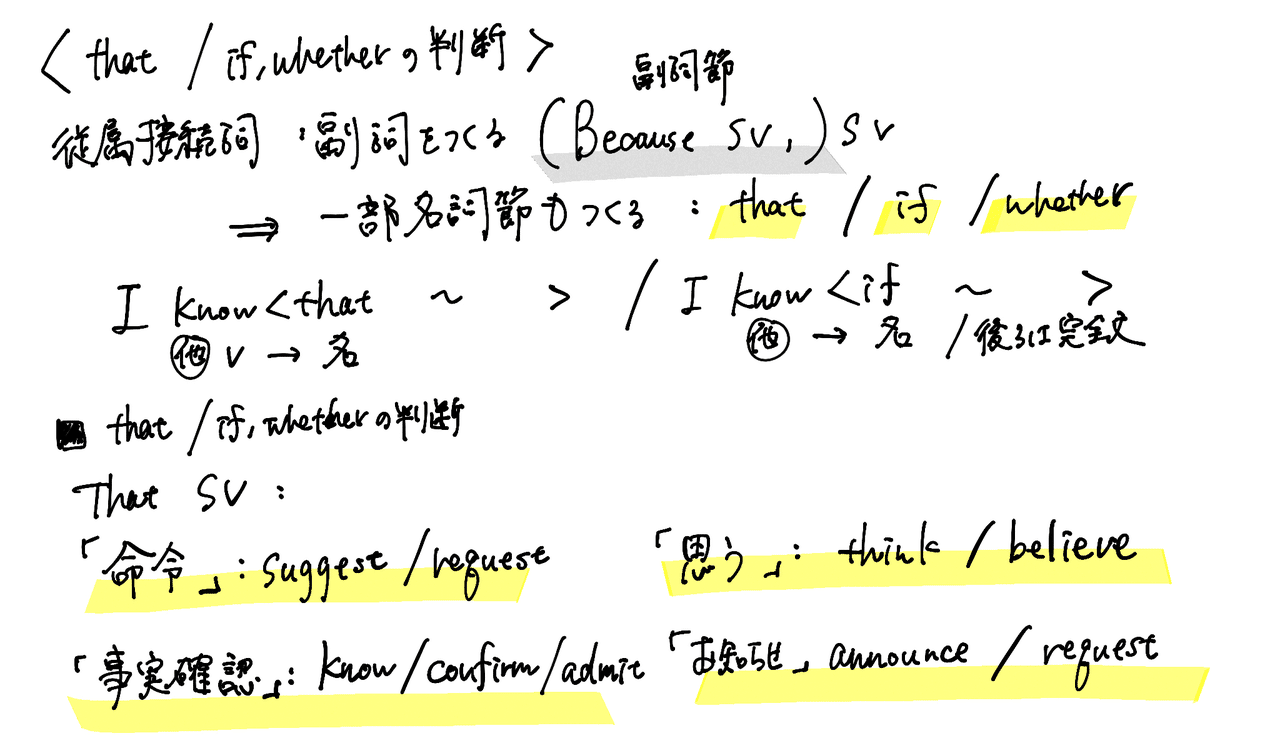 < that / if, whether の判断 >
副詞節
従属接続詞 : 副詞をつくる (Because SV, ) SV
⇒ 一部名詞節もつくる : that / if / whether
I know <that ~ > / I know <if ~ >
他 v → 名 他 → 名 / 後ろは完全文
■ that / if, whether の判断
That SV :
「命令」: suggest / request 「思う」: think / believe
「事実確認」: know / confirm / admit 「お知らせ」 announce / request